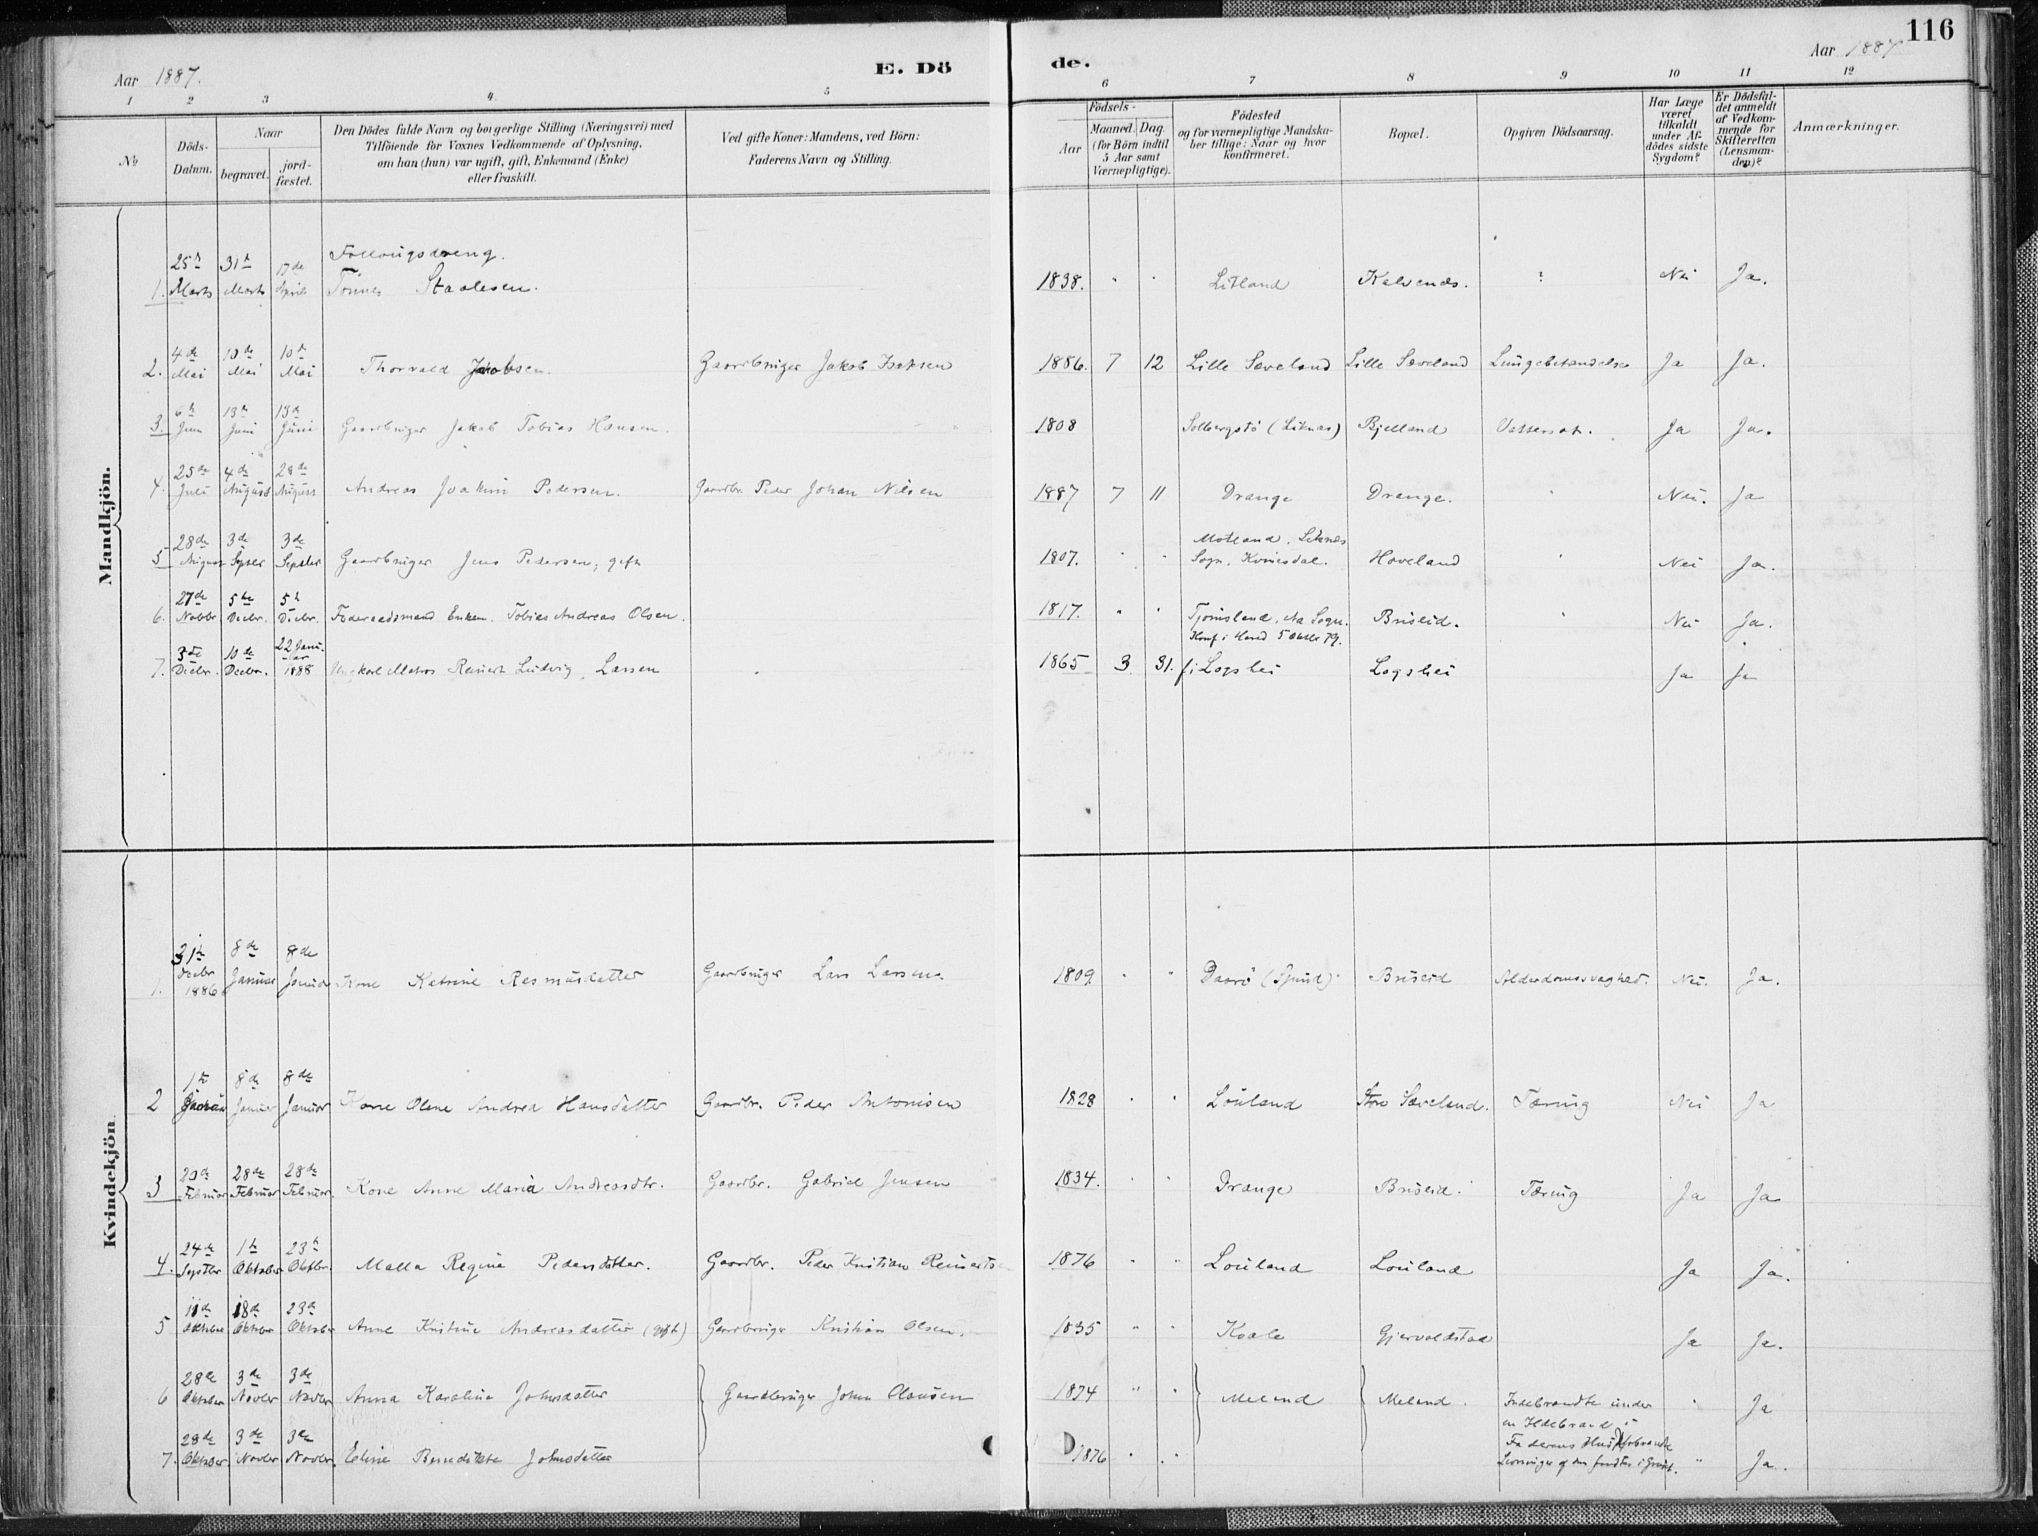 116
Aar 1887.
E. Dö
de.
Aar 1887
1 2 3 4. 5 6 7 8 9 10 11 12
No
Döds-Datum.
Naar
begravet.
jord-fæstet.
Den Dödes fulde Navn og borgerlige Stilling (Næringsvei) med
Tilföiende for Voxnes Vedkommende af Oplysning,
om han (hun) var ugift, gift, Enkemand (Enke)
eller fraskilt.
Ved gifte Koner: Mandens, ved Börn:
Faderens Navn og Stilling.
Födsels-
Aar
Maaned. Dag.
(for Börn indtil
5 Aar samt
Værnepligtige).
Födested
og for værnepligtige Mandska-
ber tillige: Naar og hvor
konfirmeret.
Bopæl.
Opgiven Dödsaarsag.
Har Læge
været
tilkaldt
under Af-
dödes sidste
Sygdom?
Er Dödsfal-
det anmeldt
af Vedkom-
mende for
Skifteretten
(Lensman-
den)?
Anmærkninger.
Mandkjön.
1. 25de Marts 31te Marts 17de April Tönnes Staalesen. 1838. " " Litland Kalvenes. ? Nei Ja.
2. 4de Mai 10de Mai 10de Mai Thorvald Jakobsen. Gaardbruger Jakob Isaksen 1886. 7 12 Lille Sæveland Lille Sæveland Lungebetændelse Ja Ja.
3. 6te Juni 13de Juni 13de Juni Gaardbruger Jakob Tobias Hansen. 1808 (Liknæs) Bjelland Vattersot. Ja Ja.
4. 25de Juli 4de August 28de August Andreas Joakim Pedersen. Gaardbr. Peder Johan Nilsen 1887 7 11 Drange Drange. " Nei. Ja
5 28de August 3de Septbr 3de Septbr Gaardbruger Jens Pedersen, gift 1807. " " Moteland, Liknes Sogn, Kvinesdal. Hoveland " Nei Ja.
6. 27de Novbr. 5te Decbr. 5te Decbr. Föderaadsmand Enkem. Tobias Andreas Olsen. 1817. " " Tjomsland, Aa Sogn. Briseid. " Nei Ja.
7. 3de Decbr. 10de Decbr. 22 Januar 1888 Ungkarl Matros Reinert Ludvig Larsen 1865 3 31. Konf. i Herred 5 Oktbr 79. f. i Logshei Logshei Ja Ja
Kvindekjön
1. 31te Decbr 1886 8de Januar 8de Januar Kone Katrine Rasmusdatter Gaardbruger Lars Larsen. 1809 " " (Spind) Briseid Alderdomssvaghed. Nei. Ja.
2 1te Januar 8de Januar 8de Januar Kone Olene Andrea Hansdatter Gaardbr. Peder Antonisen 1828 " " Louland Store Sæveland. Tæring Nei Ja
3 20de Februar 28de Februar 28de Februar. Kone Anne Maria Andreasdtr. Gaardbr. Gabriel Jensen 1834. " " Drange Briseid. Tæring Ja Ja
4. 24de Septbr 1te Oktober 23de Oktbr. Malla Regine Pedersdatter. Gaardbr. Peder Kristian Reinerts 1876 " " Louland Louland Ja Ja.
5 11de Oktober 18de Oktober 23de Oktober Anne Kristine Andreasdatter (gift) Gaardbruger Kristian Olsen. 1835 " " Kvale Gjervoldstad Ja Ja.
6 28de Oktober 3de Novbr 3de Novbr Anna Karoline Johnsdatter Gaardbruger John Olausen 1874 " " Meland Meland. Indebrændte under en Ildebrand i Faderens Hus " Ja
7. 28de Oktober 3de Novbr 3de Novbr. Eline Benedikte Johnsdatter 1876 " " " Ja.